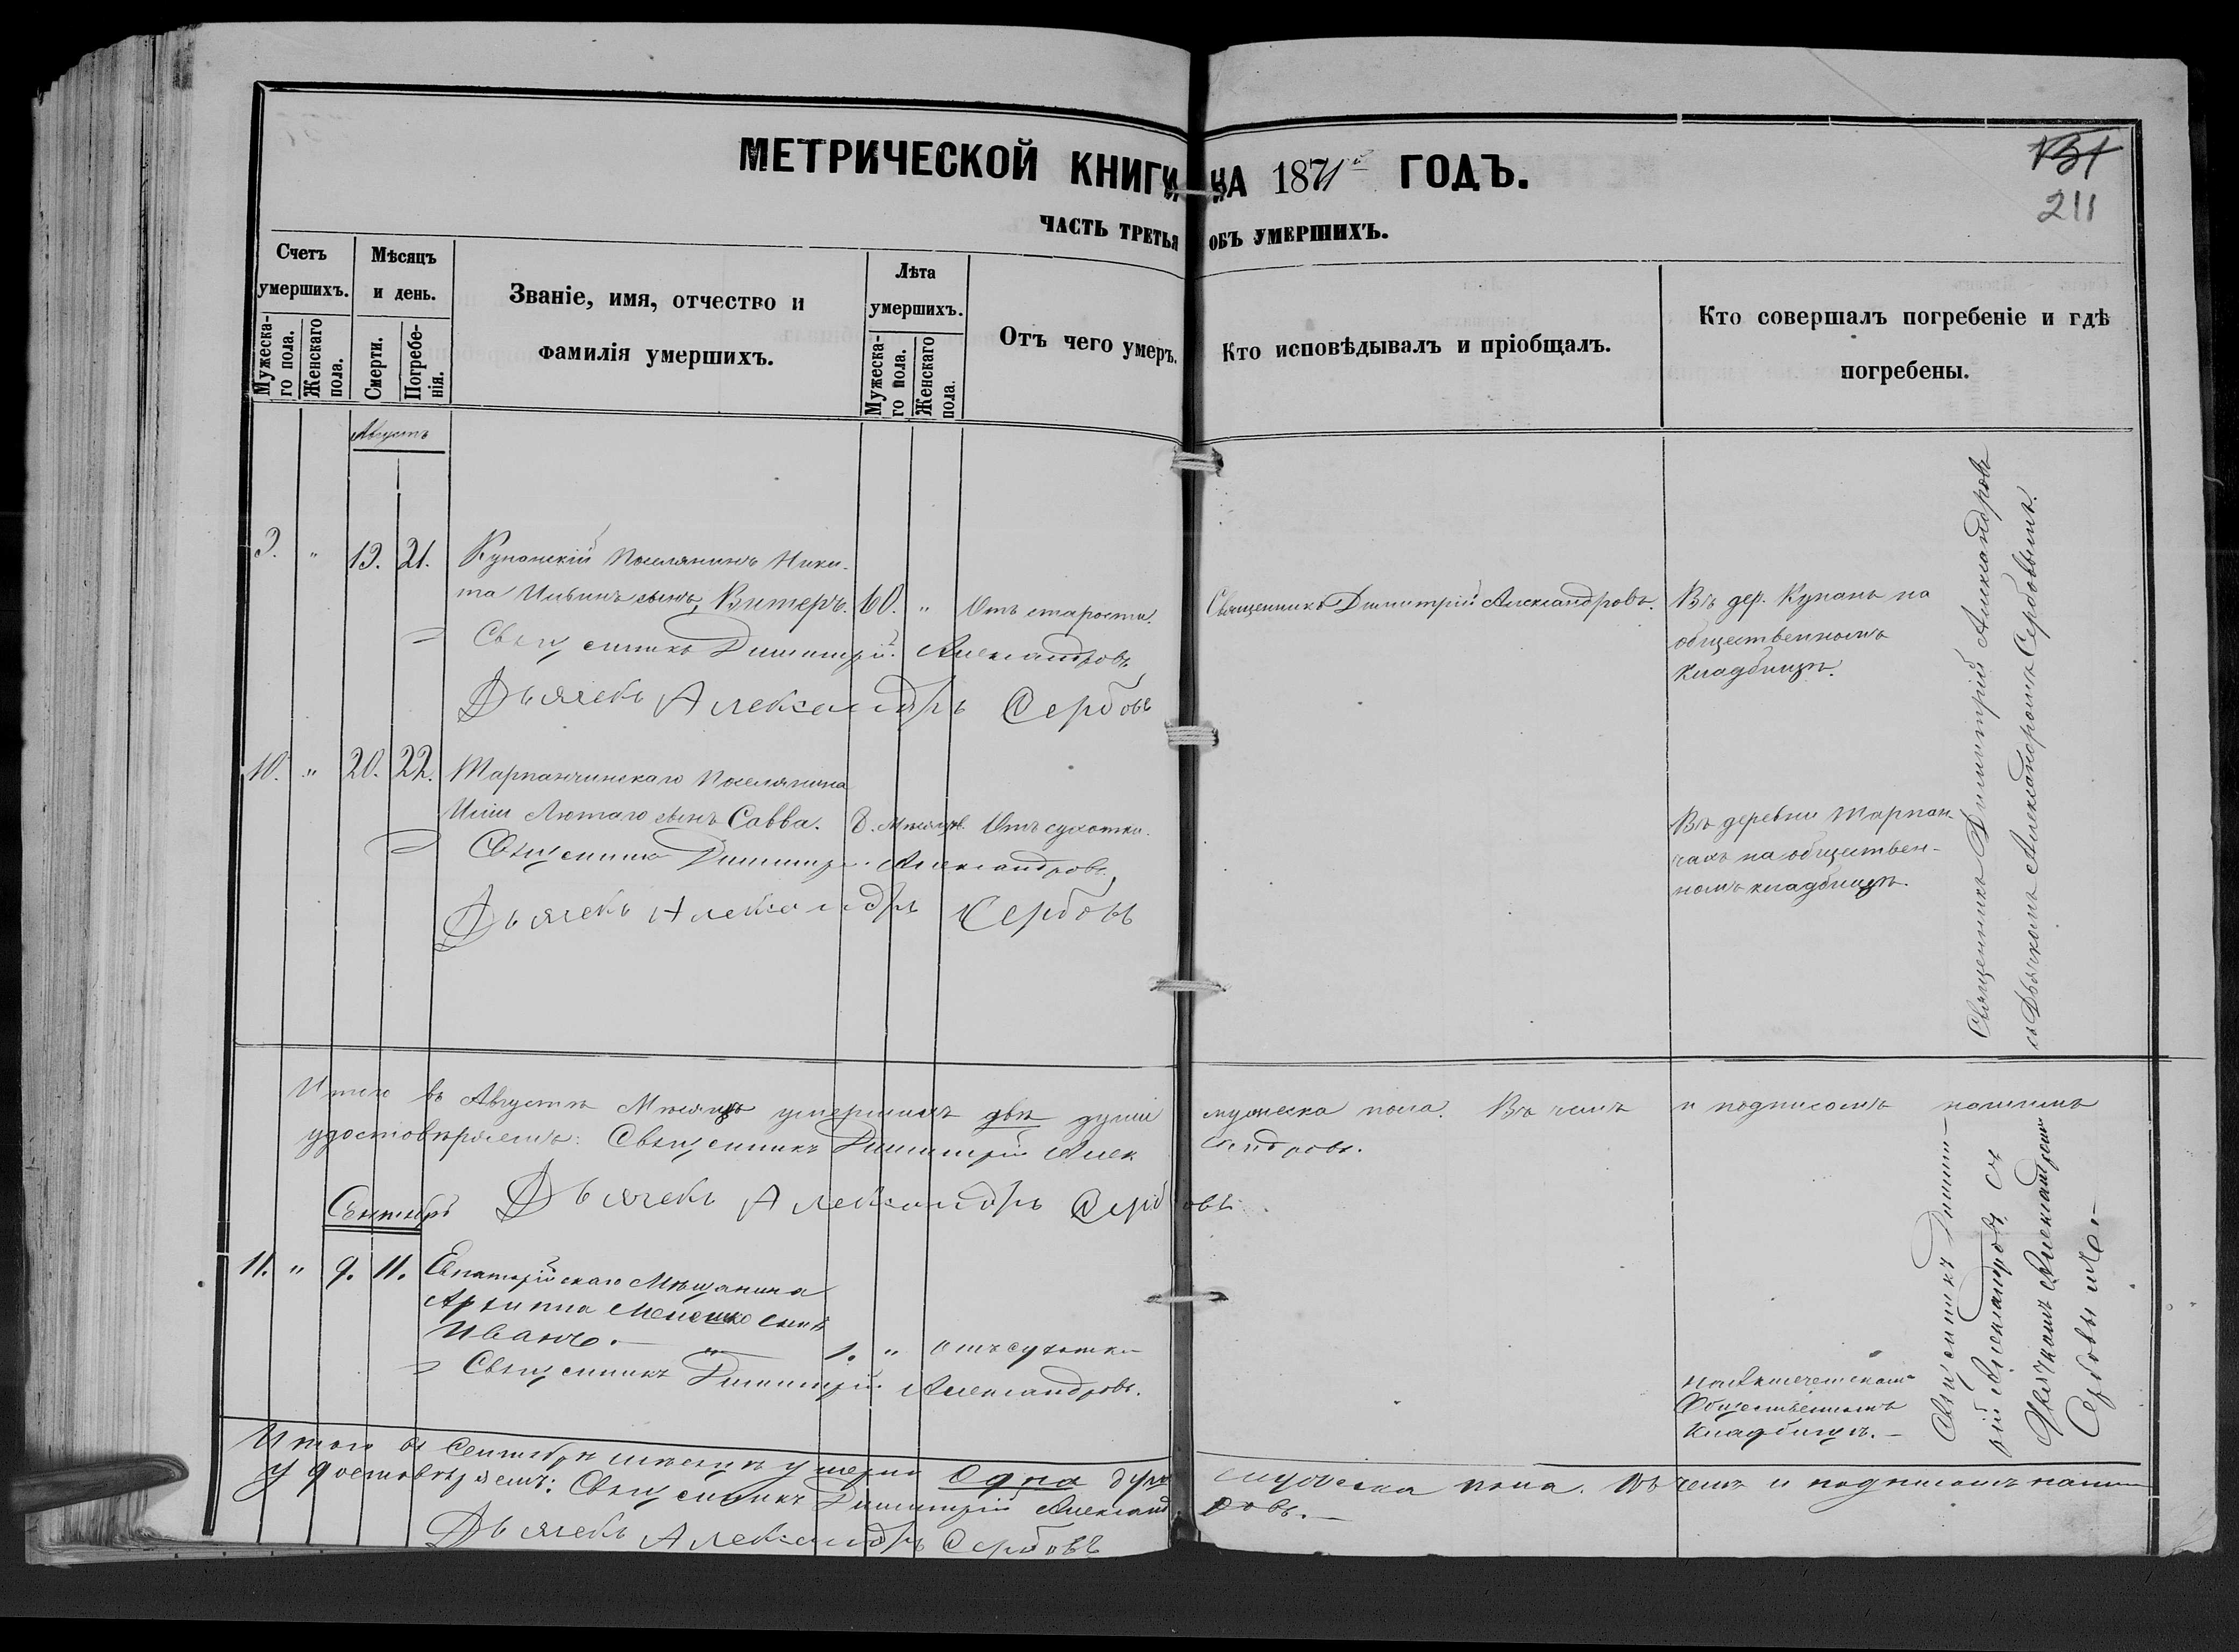 МЕТРИЧЕСКОЙ КНИГИ НА 1871й ГОДЪ.
151
211
ЧАСТЬ ТРЕТЬЯ ОБЪ УМЕРШИХЪ.
Счетъ умершихъ.
Мужеска-го пола.
Женскаго пола.
Мѣсяцъ и день.
Смерти.
Погребе-нія.
Званіе, имя, отчество и
фамилія умершихъ.
Лѣта умершихъ.
Мужеска-го пола.
Женскаго пола.
Отъ чего умеръ.
Кто исповѣдывалъ и пріобщалъ.
Кто совершалъ погребеніе и гдѣ
погребены.
Августъ
9. " 19. 21. Купанскій Поселянинъ Ники-
та Ильинъ сынъ, Витеръ. 60. " Отъ старости. Священникъ Димитрій Александровъ. Въ дер. Купань на
общественномъ
кладбищѣ.
Священникъ Димитрій Александровъ
Дьячекъ Александръ Сербовъ
10. " 20. 22. Тарпанчинскаго Поселянина
Иліи Лютаго сынъ Савва. 8. Мѣсяцев. Отъ сухотки. Въ деревни Тарпан-
чахъ на обществен-
номъ кладбищѣ.
Священникъ Димитрій Александровъ
Дьячекъ Александръ Сербовъ
Священникъ Димитрій Александровъ
съ Дьячкомъ Александромъ Сербовымъ.
Итого въ Августѣ Мѣсяцѣ умершихъ двѣ души мужеска пола. Въ чемъ и подписомъ нашимъ
удостовѣряемъ: Священникъ Димитрій Александровъ.
Дьячекъ Александръ Сербовъ
Сентябрь
11. " 9. 11. Евпаторійскаго Мѣщанина
Архиппа сынъ
Иванъ. 1. " отъ сухотки
на Акмечетскомъ
Общественномъ
Кладбищѣ.
Священникъ Димитрій Александровъ.
Священникъ Димит-
рій Александровъ съ
Дьячкомъ Александромъ
Сербовымъ.
Итого въ Сентябрѣ мѣсяцѣ умерло одна душа мужеска пола. Въ чемъ и подписомъ нашим
удостовѣряемъ: Священникъ Димитрій Александровъ.
Дьячекъ Александръ Сербовъ